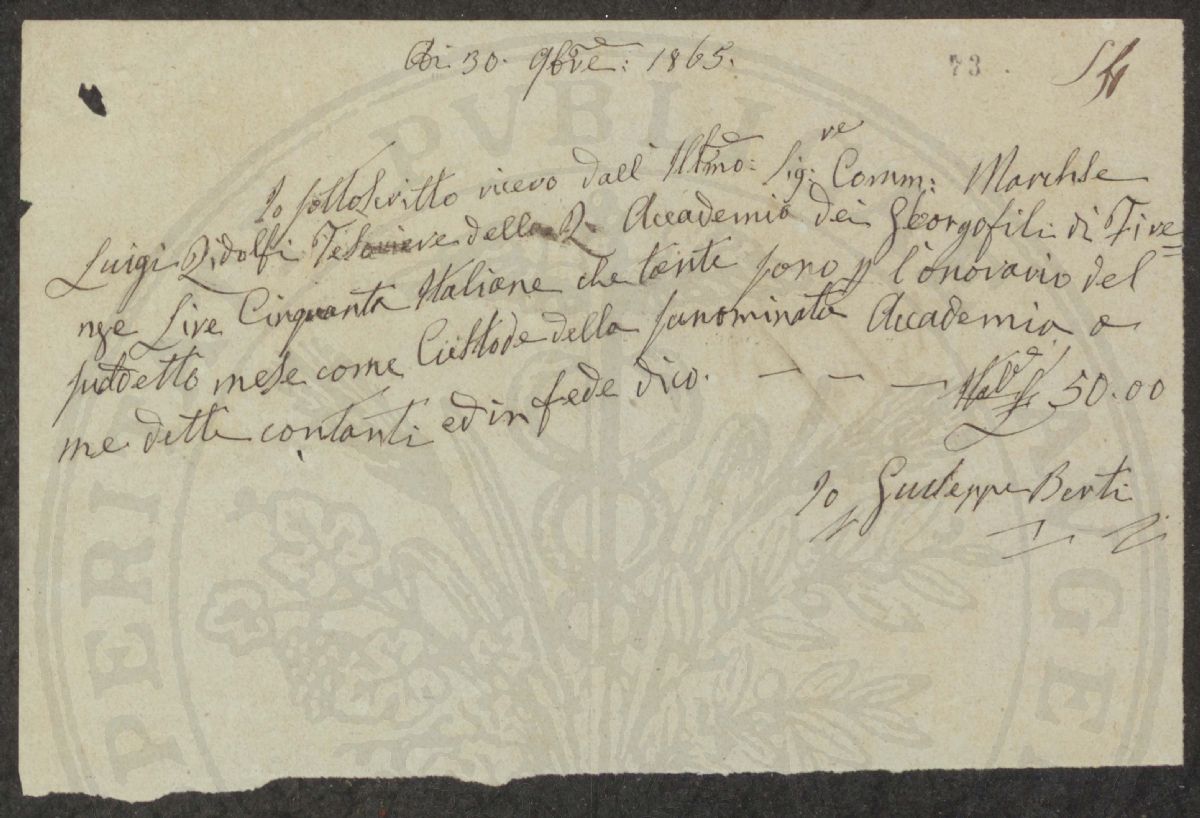 Adi 30. 9bre: 1865.
73.
Io sottoscritto ricevo dall' Illmo: Sigre: Comm: Marchse
Luigi Ridolfi Tesoriere della R. Accademia dei Georgofili di Fire=
nze Lire Cinquanta Italiane che tante sono p l'onorario del
suddetto mese come Custode della sunominata Accademia a
me dette contanti ed in fede dico. — — — 50.00
Io Giuseppe Berti
PERI PVBLI AVGE